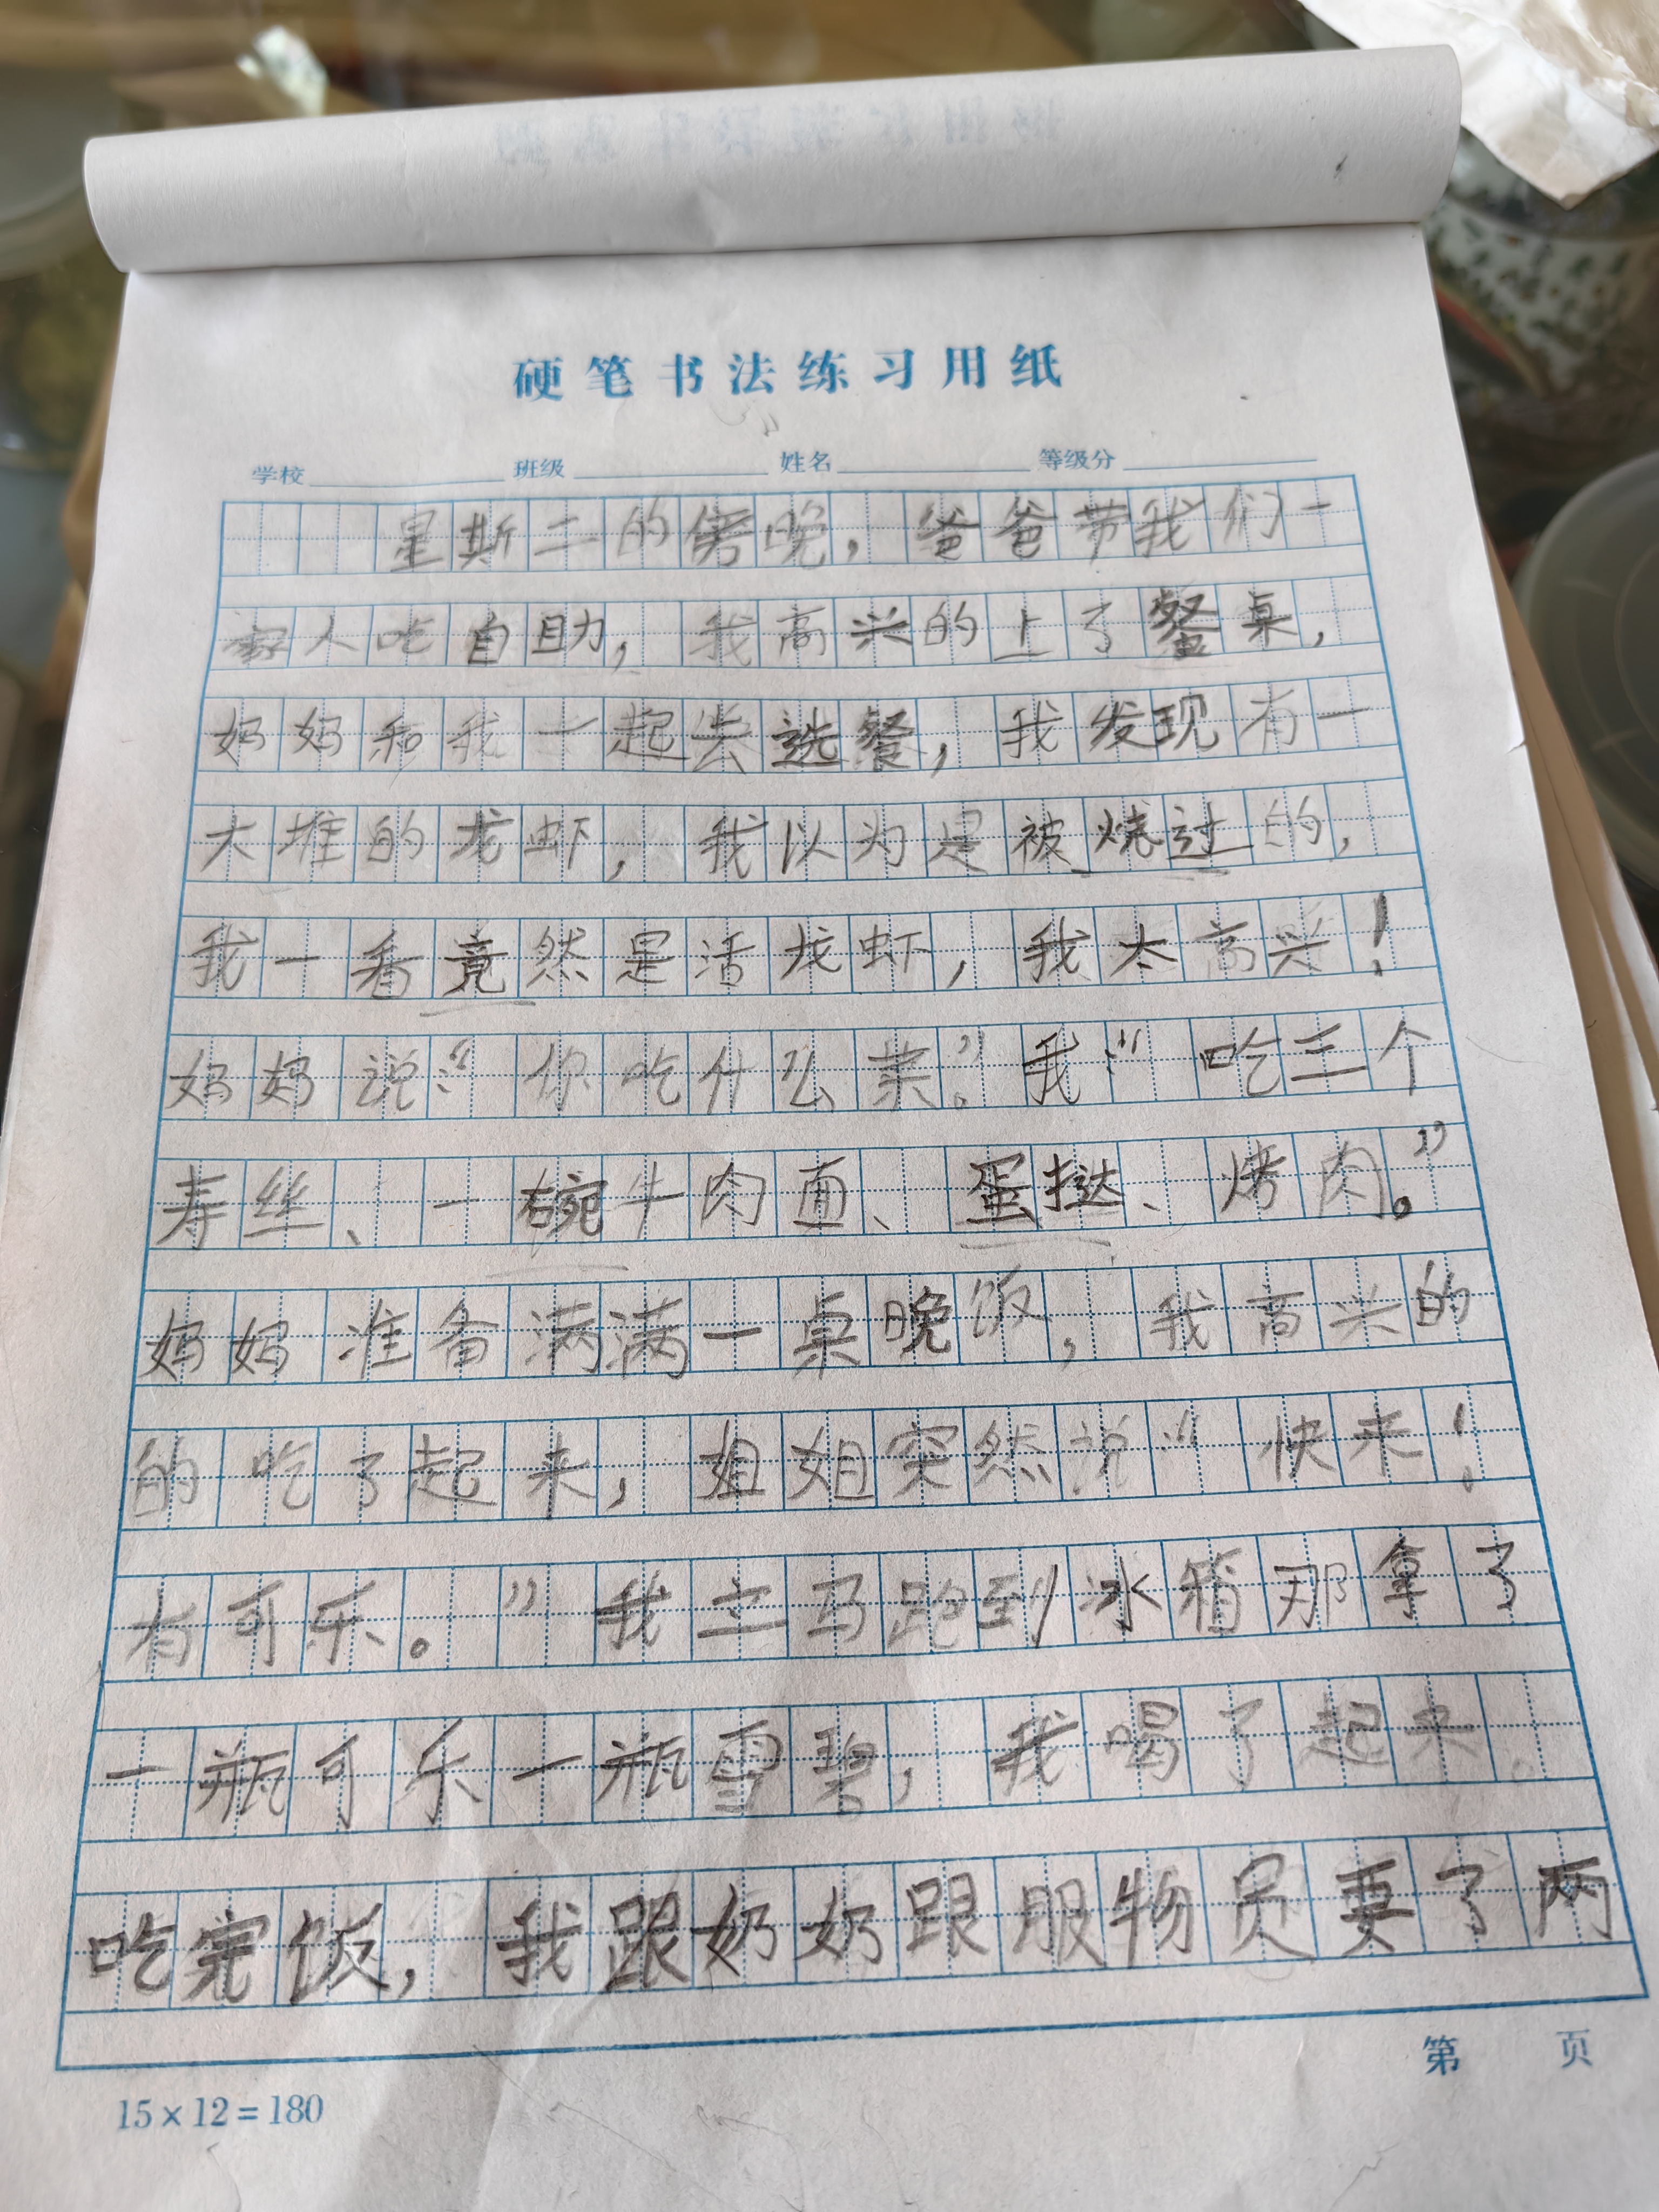 硬笔书法练习用纸
学校 班级 姓名 等级分
星斯二的傍晚，爸爸带我们一
家人吃自助，我高兴的上了餐桌，
妈妈和我一起去选餐，我发现有一
大堆的龙虾，我以为是被烧过的，
我一看竟然是活龙虾，我太高兴！
妈妈说：“你吃什么菜”。我：“吃三个
寿丝、一碗牛肉面、蛋挞、烤肉。”
妈妈准备满满一桌晚饭，我高兴的
的吃了起来，姐姐突然说“快来！
有可乐。”我立马跑到冰箱那拿了
一瓶可乐一瓶雪碧，我喝了起来。
吃完饭，我跟奶奶跟服物员要了两
第 页
15×12=180